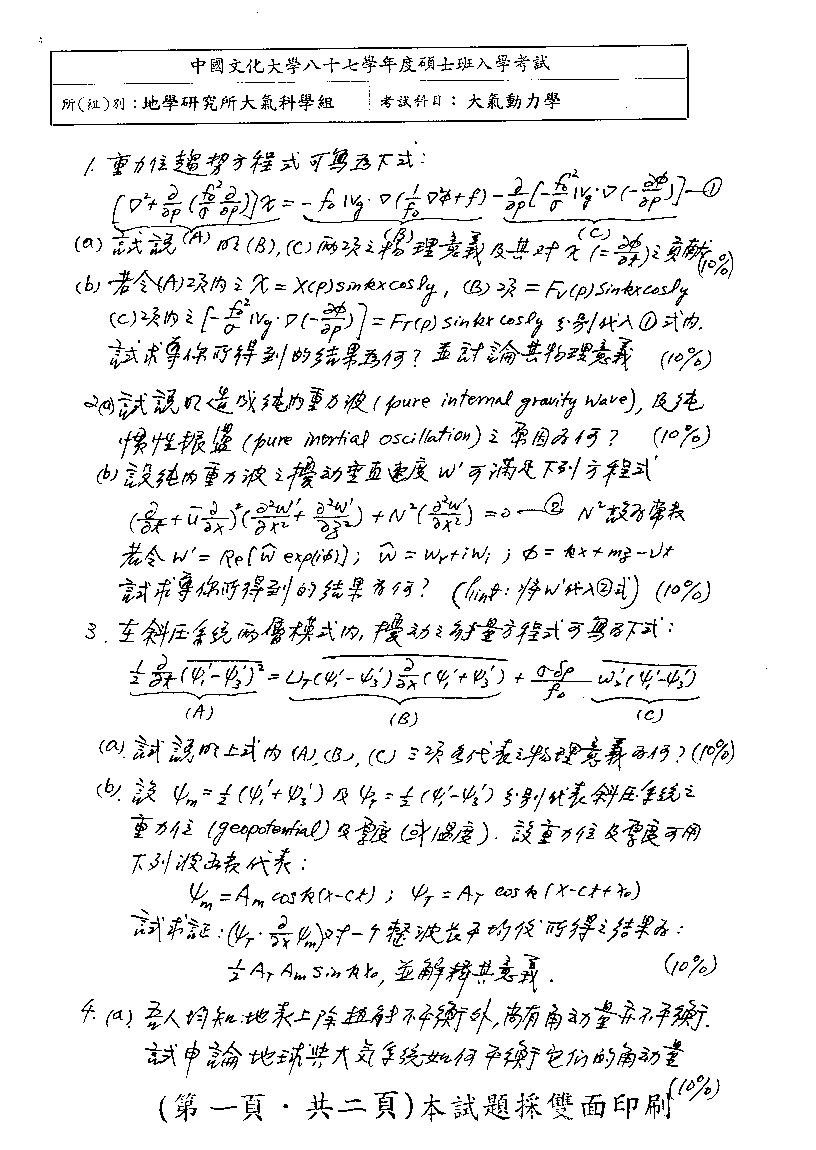 中國文化大學八十七學年度碩士班入學考試
所(組)別：地學研究所大氣科學組 考試科目：大氣動力學
1. 重力位趨勢方程式可寫為下式：
[∇²+∂/∂p(f₀²/σ ∂/∂p)]χ = -f₀ Vg·∇(1/f₀ ∇²Φ+f) - ∂/∂p[-f₀²/σ Vg·∇(-∂Φ/∂p)] —①
(A) (B) (C)
(a) 試說明(B),(C)兩項之物理意義及其對χ(=∂Φ/∂t)之貢獻 (10%)
(b) 若令(A)項內之χ = X(p)sinkxcosly, (B)項 = Fv(p)sinkxcosly
(C)項內之[-f₀²/σ Vg·∇(-∂Φ/∂p)] = FT(p) sinkx cosly 分別代入①式內.
試求導你所得到的結果為何? 並討論其物理意義 (10%)
2(a) 試說明造成純內重力波(pure internal gravity wave), 及純
慣性振盪(pure inertial oscillation)之原因為何? (10%)
(b) 設純內重力波之擾動垂直速度w'可滿足下列方程式
(∂/∂t+ū∂/∂x)²(∂²w'/∂x²+∂²w'/∂z²)+N²(∂²w'/∂x²)=0 —② N²設為常數
若令w' = Re[ŵ exp(iφ)]; ŵ = wr+iwi; φ = kx+mz-νt
試求導你所得到的結果為何? (hint: 將w'代入②式) (10%)
3. 在斜壓系統兩層模式內, 擾動之能量方程式可寫為下式：
½ ∂/∂t (ψ₁'-ψ₃')² = U_T(ψ₁'-ψ₃')∂/∂x(ψ₁'+ψ₃') + σδp/f₀ w₂'(ψ₁'-ψ₃')
(A) (B) (C)
(a). 試說明上式內(A),(B),(C)三項各代表之物理意義為何? (10%)
(b). 設ψm = ½(ψ₁'+ψ₃')及ψT = ½(ψ₁'-ψ₃')分別代表斜壓系統之
重力位(geopotential)及厚度(或溫度). 設重力位及厚度可用
下列波函表代表：
ψm = Am cosk(x-ct); ψT = AT cosk(x-ct+x₀)
試求証：(ψT·∂/∂x ψm)對一个整波長平均後所得之結果為：
½ AT Am sinkx₀, 並解釋其意義. (10%)
4. (a). 吾人均知:地表上除輻射不平衡外, 尚有角動量亦不平衡.
試申論地球與大氣系統如何平衡它們的角動量
(10%)
(第一頁．共二頁)本試題採雙面印刷